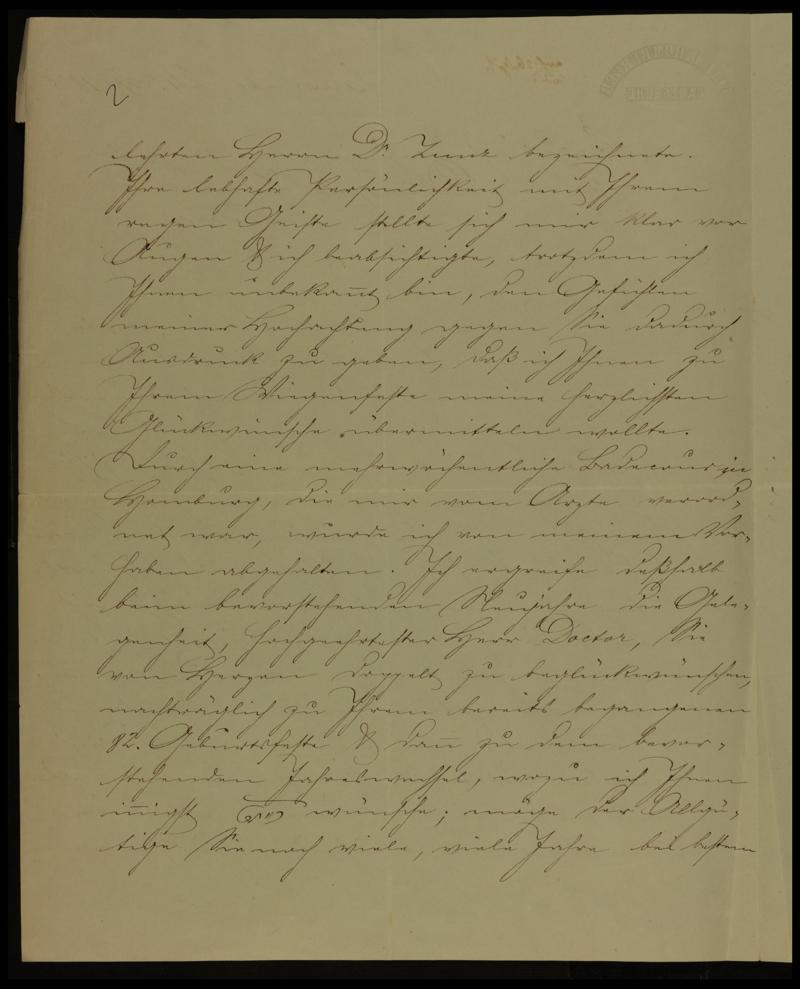 2
lehrten Herrn Dr. Zunz bezeichnete.
Ihre lebhafte Persönlichkeit mit Ihrem
regen Geiste stellte sich mir klar vor
Augen & ich beabsichtigte, trotzdem ich
Ihnen unbekañt bin, den Gefühlen
meiner Hochachtung gegen Sie dadurch
Ausdruck zu geben, daß ich Ihnen zu
Ihrem Wiegenfeste meine herzlichsten
Glückwünsche übermitteln wollte.
Durch eine mehrwöchentliche Badecour in
Homburg, die mir vom Arzte verord-
net war, wurde ich von meinem Vor-
haben abgehalten. Ich ergreife deßhalb
beim bevorstehenden Neujahre die Gele-
genheit, hochgeehrtester Herr Doctor, Sie
von Herzen doppelt zu beglückwünschen,
nachträglich zu Ihrem bereits begangenen
82. Geburtsfeste & dañ zu dem bevor-
stehenden Jahreswechsel, wozu ich Ihnen
iñigst wünsche; möge der Allgü-
tige Sie noch viele, viele Jahre bei bestem